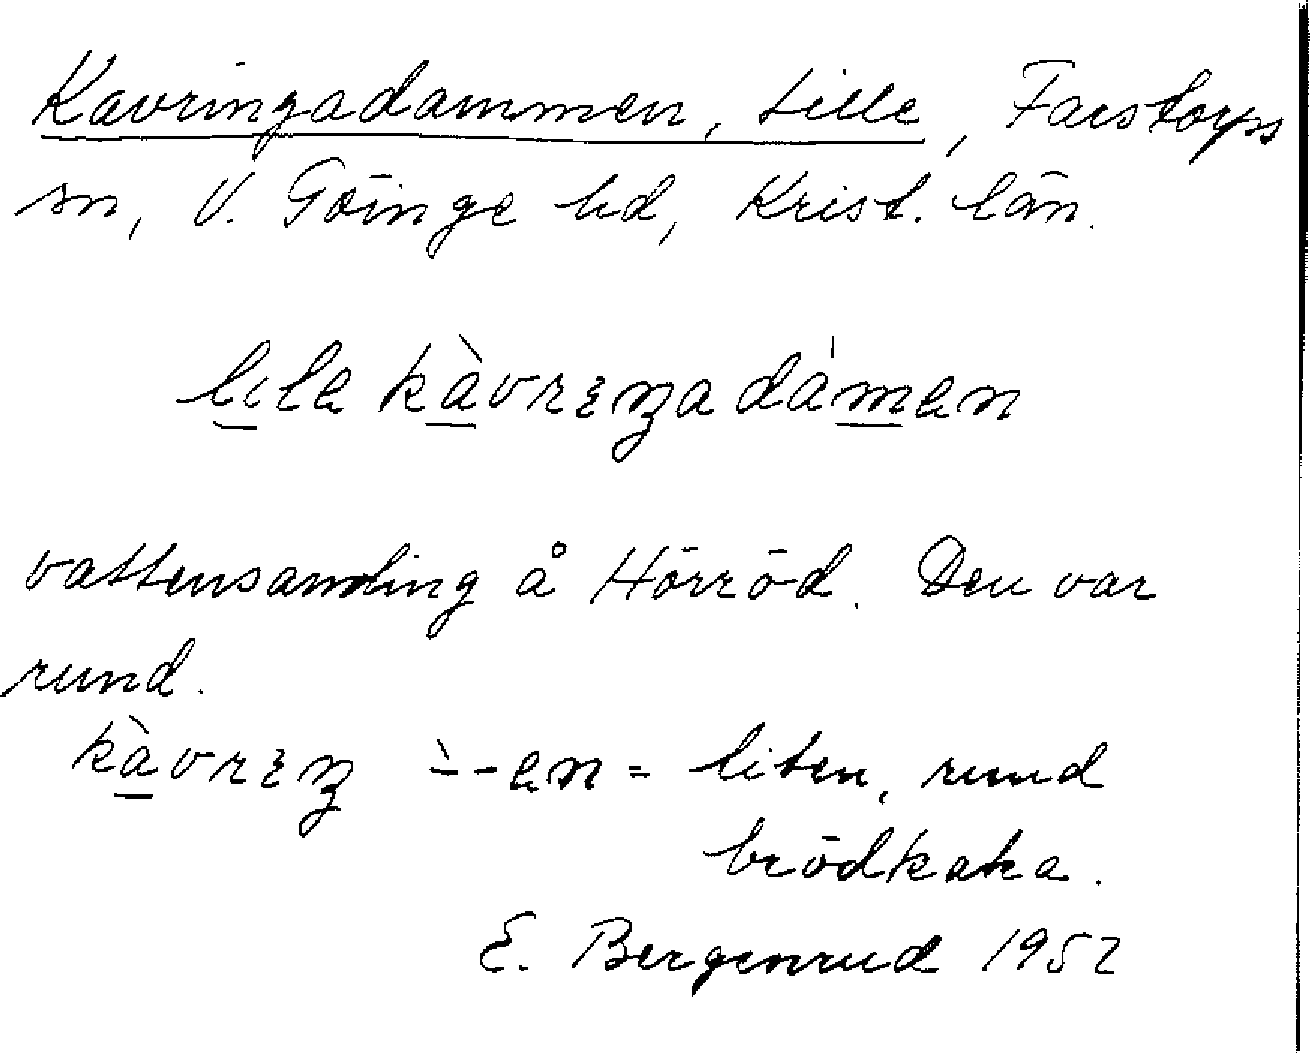 Kavringadammen, Lille, Farstorps
sn, V. Göinge hd, Krist. län.
lıla kàvrɪŋadámən
vattensamling å Hörröd. Den var
rund.
kàvrɪŋ ˋ--ən = liten, rund
brödkaka.
E. Bergenrud 1952